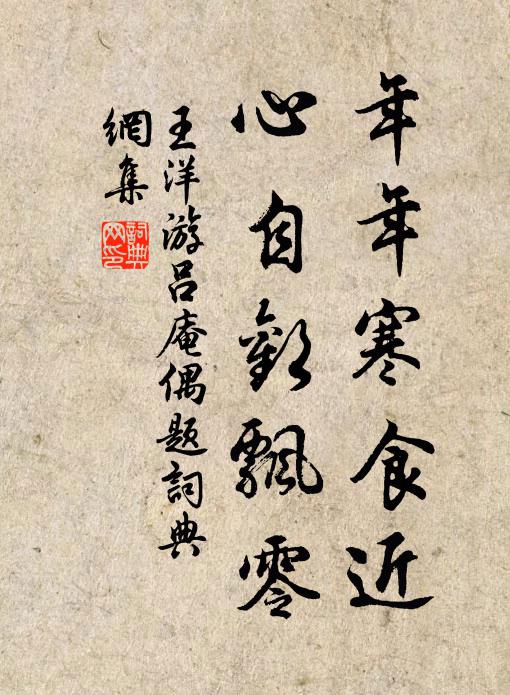 年年寒食近
心自歎飄零
王洋游呂庵偶題詞典
網集
詞典
网印